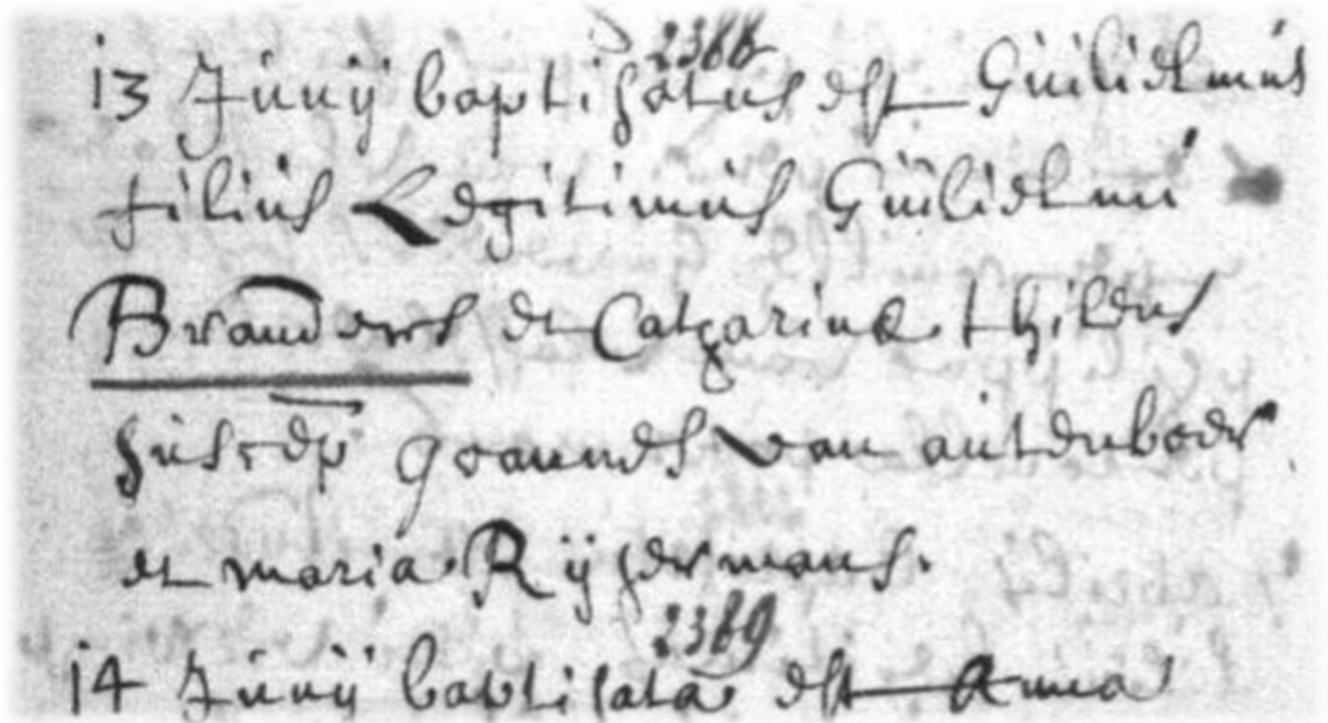 2388
13 Junij baptisatus est Guilielmus
filius Legitimus Guilielmi
Branders et Catharinae thielens
suscep Joannes van autenboer
et maria Rijsermans.
2389
14 Junij baptisata est Anna